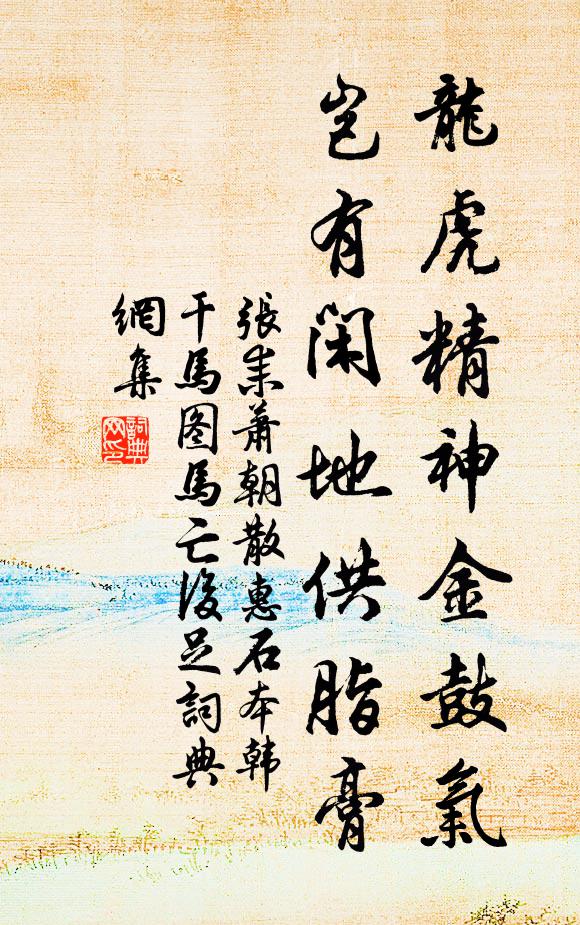 龍虎精神金鼓氣
豈有閑地供脂膏
張耒蕭朝散惠石本韩
干馬图馬亡後足詞典
網集
詞典
网印